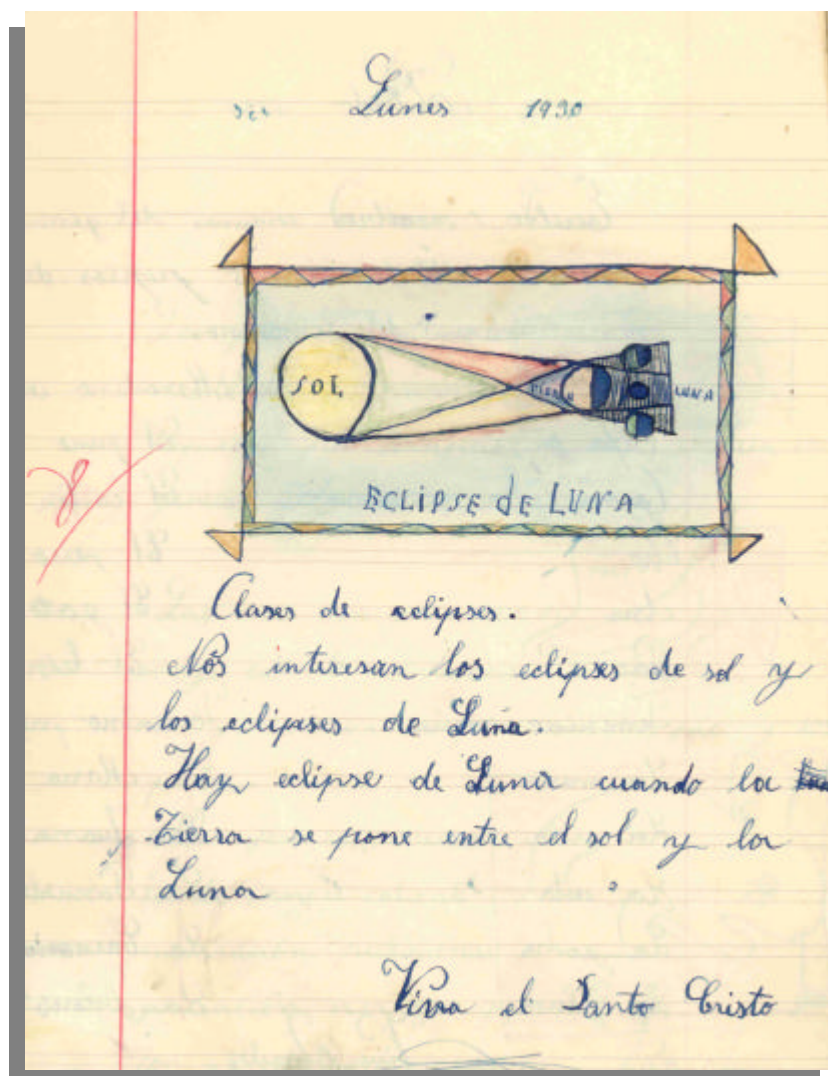 Lunes 1930
SOL
TIERRA
LUNA
ECLIPSE DE LUNA
Clases de eclipses.
Nos interesan los eclipses de sol y
los eclipses de Luna.
Hay eclipse de Luna cuando la
Tierra se pone entre el sol y la
Luna
Viva el Santo Cristo